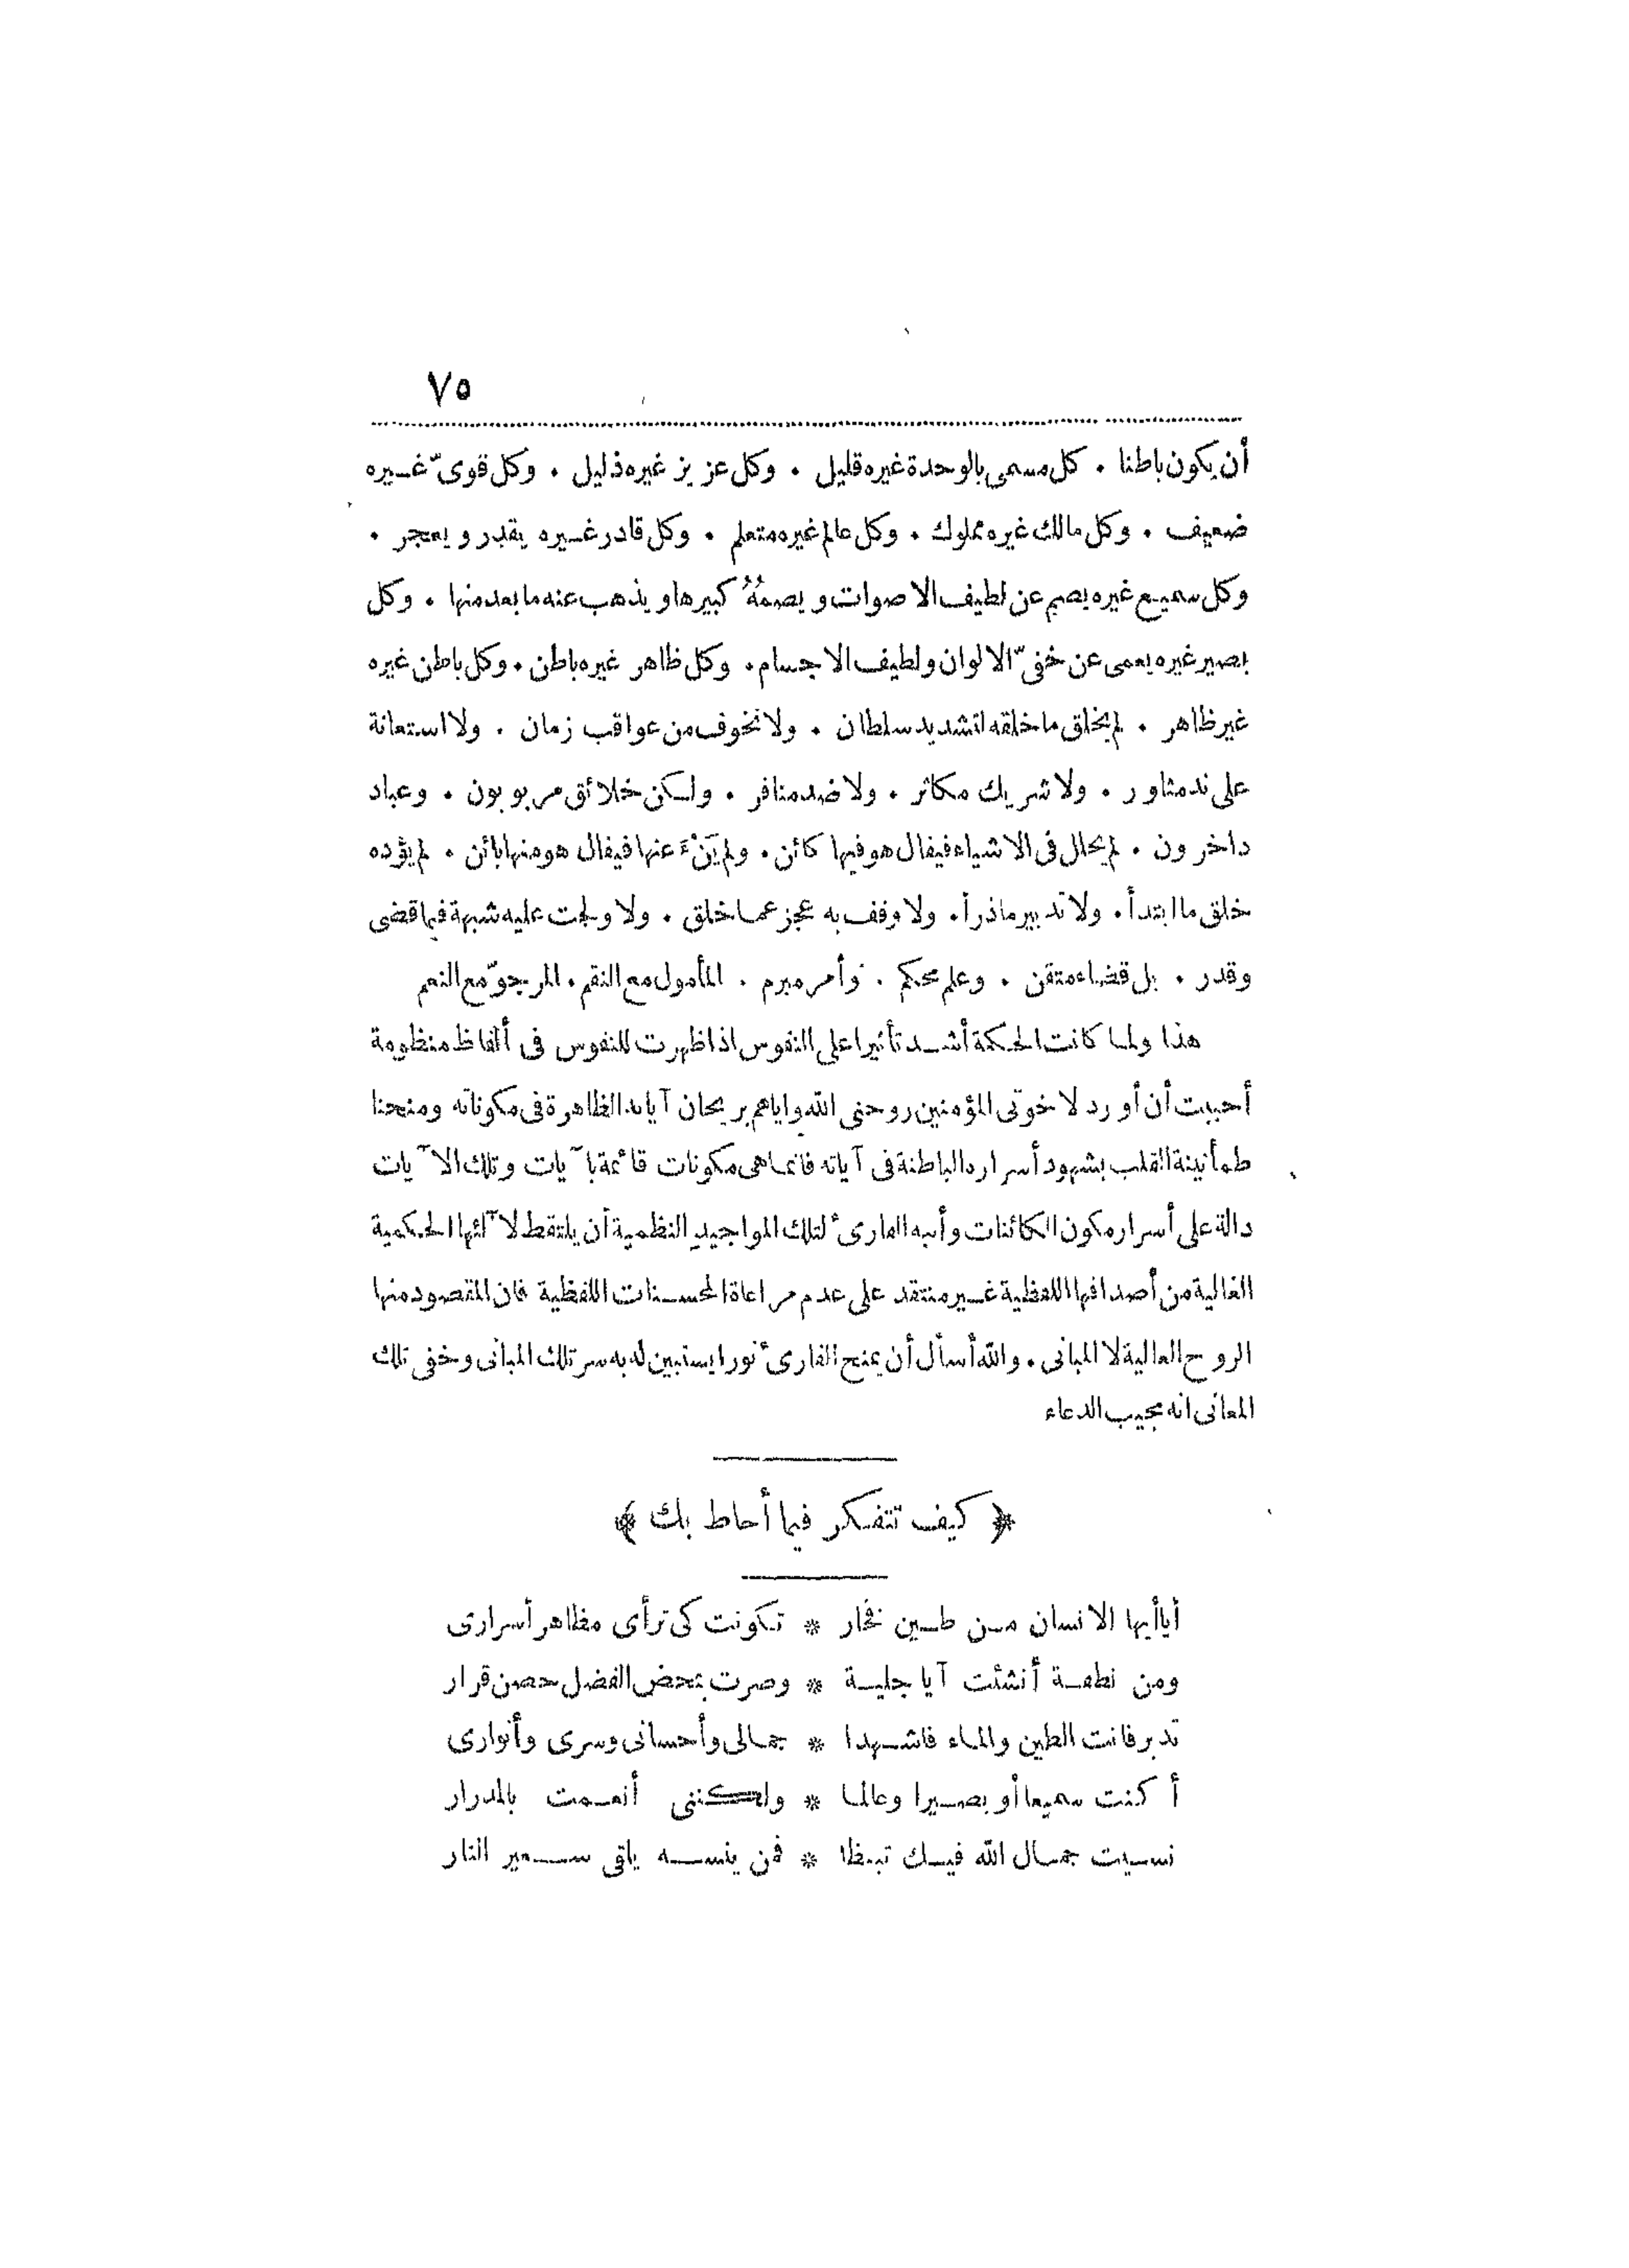 ٧٥
أن يكون باطنا . كل مسمى بالوحدة غيره قليل . وكل عزيز غيره ذليل . وكل قوىّ غيره
ضعيف . وكل مالك غيره مملوك . وكل عالم غيره متعلم . وكل قادر غيره يقدر ويعجز .
وكل سميع غيره يصم عن لطيف الاصوات ويصمهُ كبيرها ويذهب عنه ما بعد منها . وكل
بصير غيره يعمى عن خفىّ الالوان ولطيف الاجسام . وكل ظاهر غيره باطن . وكل باطن غيره
غير ظاهر . لم يخلق ما خلقه لتشديد سلطان . ولا تخوف من عواقب زمان . ولا استعانة
على ند مثاور . ولا شريك مكاثر . ولا ضد منافر . ولكن خلائق مربوبون . وعباد
داخرون . لم يحلل فى الاشياء فيقال هو فيها كائن . ولم يَنْءَ عنها فيقال هو منها بائن . لم يؤده
خلق ما ابتدأ . ولا تدبير ما ذرأ . ولا وقف به عجز عما خلق . ولا ولجت عليه شبهة فيما قضى
وقدر . بل قضاء متقن . وعلم محكم . وأمر مبرم . المأمول مع النقم . المرجوّ مع النعم
هذا ولما كانت الحكمة أشد تأثيرا على النفوس اذا ظهرت للنفوس فى ألفاظ منظومة
أحببت أن أورد لاخوتى المؤمنين روحنى الله واياهم بريحان آياته الظاهرة فى مكوناته ومنحنا
طمأنينة القلب بشهود أسراره الباطنة فى آياته فانما هى مكونات قائمة بآيات وتلك الآيات
دالة على أسرار مكون الكائنات وأنبه القارئ لتلك المواجيد النظمية أن يلتقط لآلئها الحكمية
الغالية من أصدافها اللفظية غير منتقد على عدم مراعاة المحسنات اللفظية فان المقصود منها
الروح العالية لا المبانى . والله أسأل أن يمنح القارئ نورا يستبين له به سر تلك المبانى وخفى تلك
المعانى انه مجيب الدعاء
﴿ كيف تتفكر فيما أحاط بك ﴾
أيا أيها الانسان من طين فخار * تكونت كى ترأى مظاهر أسرارى
ومن نطفة أنشئت آيا جلية * وصرت بمحض الفضل حصن قرار
تدبر فانت الطين والماء فاشهدا * جمالى وأحسانى وسرى وأنوارى
أكنت سميعا أو بصيرا وعالما * ولكننى أنعمت بالمدرار
نسيت جمال الله فيك تيقظا * فمن ينسه يلقى سعير النار